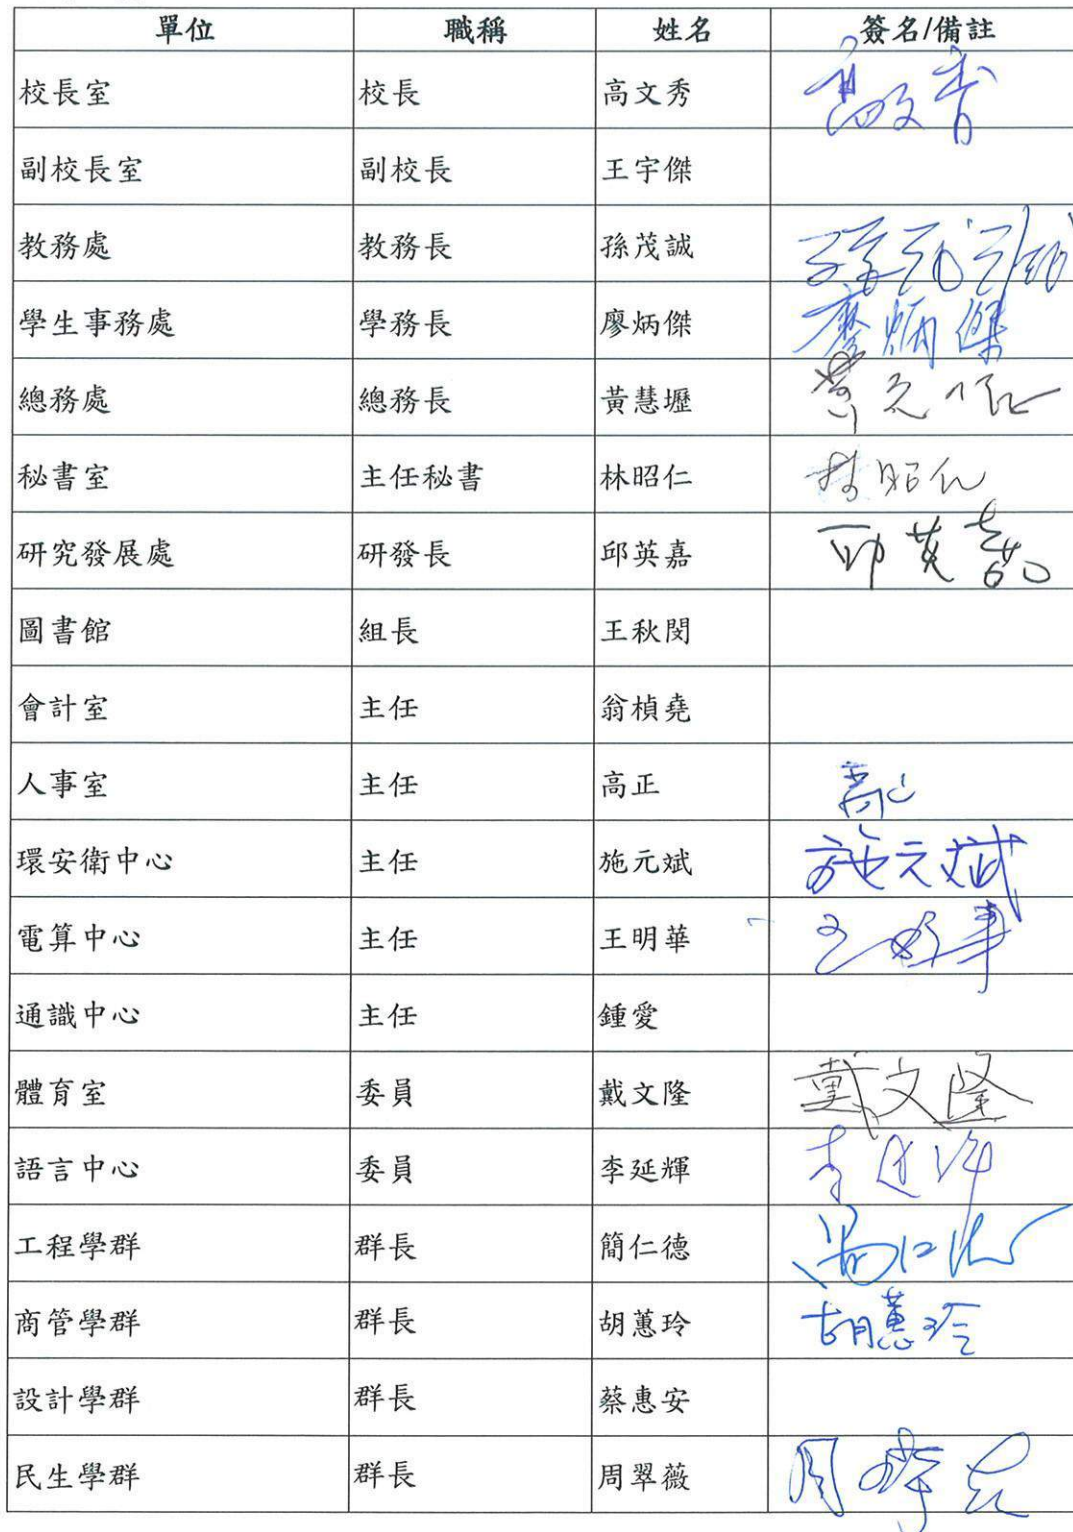 單位 職稱 姓名 簽名/備註
校長室 校長 高文秀
副校長室 副校長 王宇傑
教務處 教務長 孫茂誠
學生事務處 學務長 廖炳傑 廖炳傑
總務處 總務長 黃慧壢
秘書室 主任秘書 林昭仁 林昭仁
研究發展處 研發長 邱英嘉 邱英嘉
圖書館 組長 王秋閔
會計室 主任 翁楨堯
人事室 主任 高正
環安衛中心 主任 施元斌 施元斌
電算中心 主任 王明華
通識中心 主任 鍾愛
體育室 委員 戴文隆 戴文隆
語言中心 委員 李延輝
工程學群 群長 簡仁德
商管學群 群長 胡蕙玲 胡蕙玲
設計學群 群長 蔡惠安
民生學群 群長 周翠薇